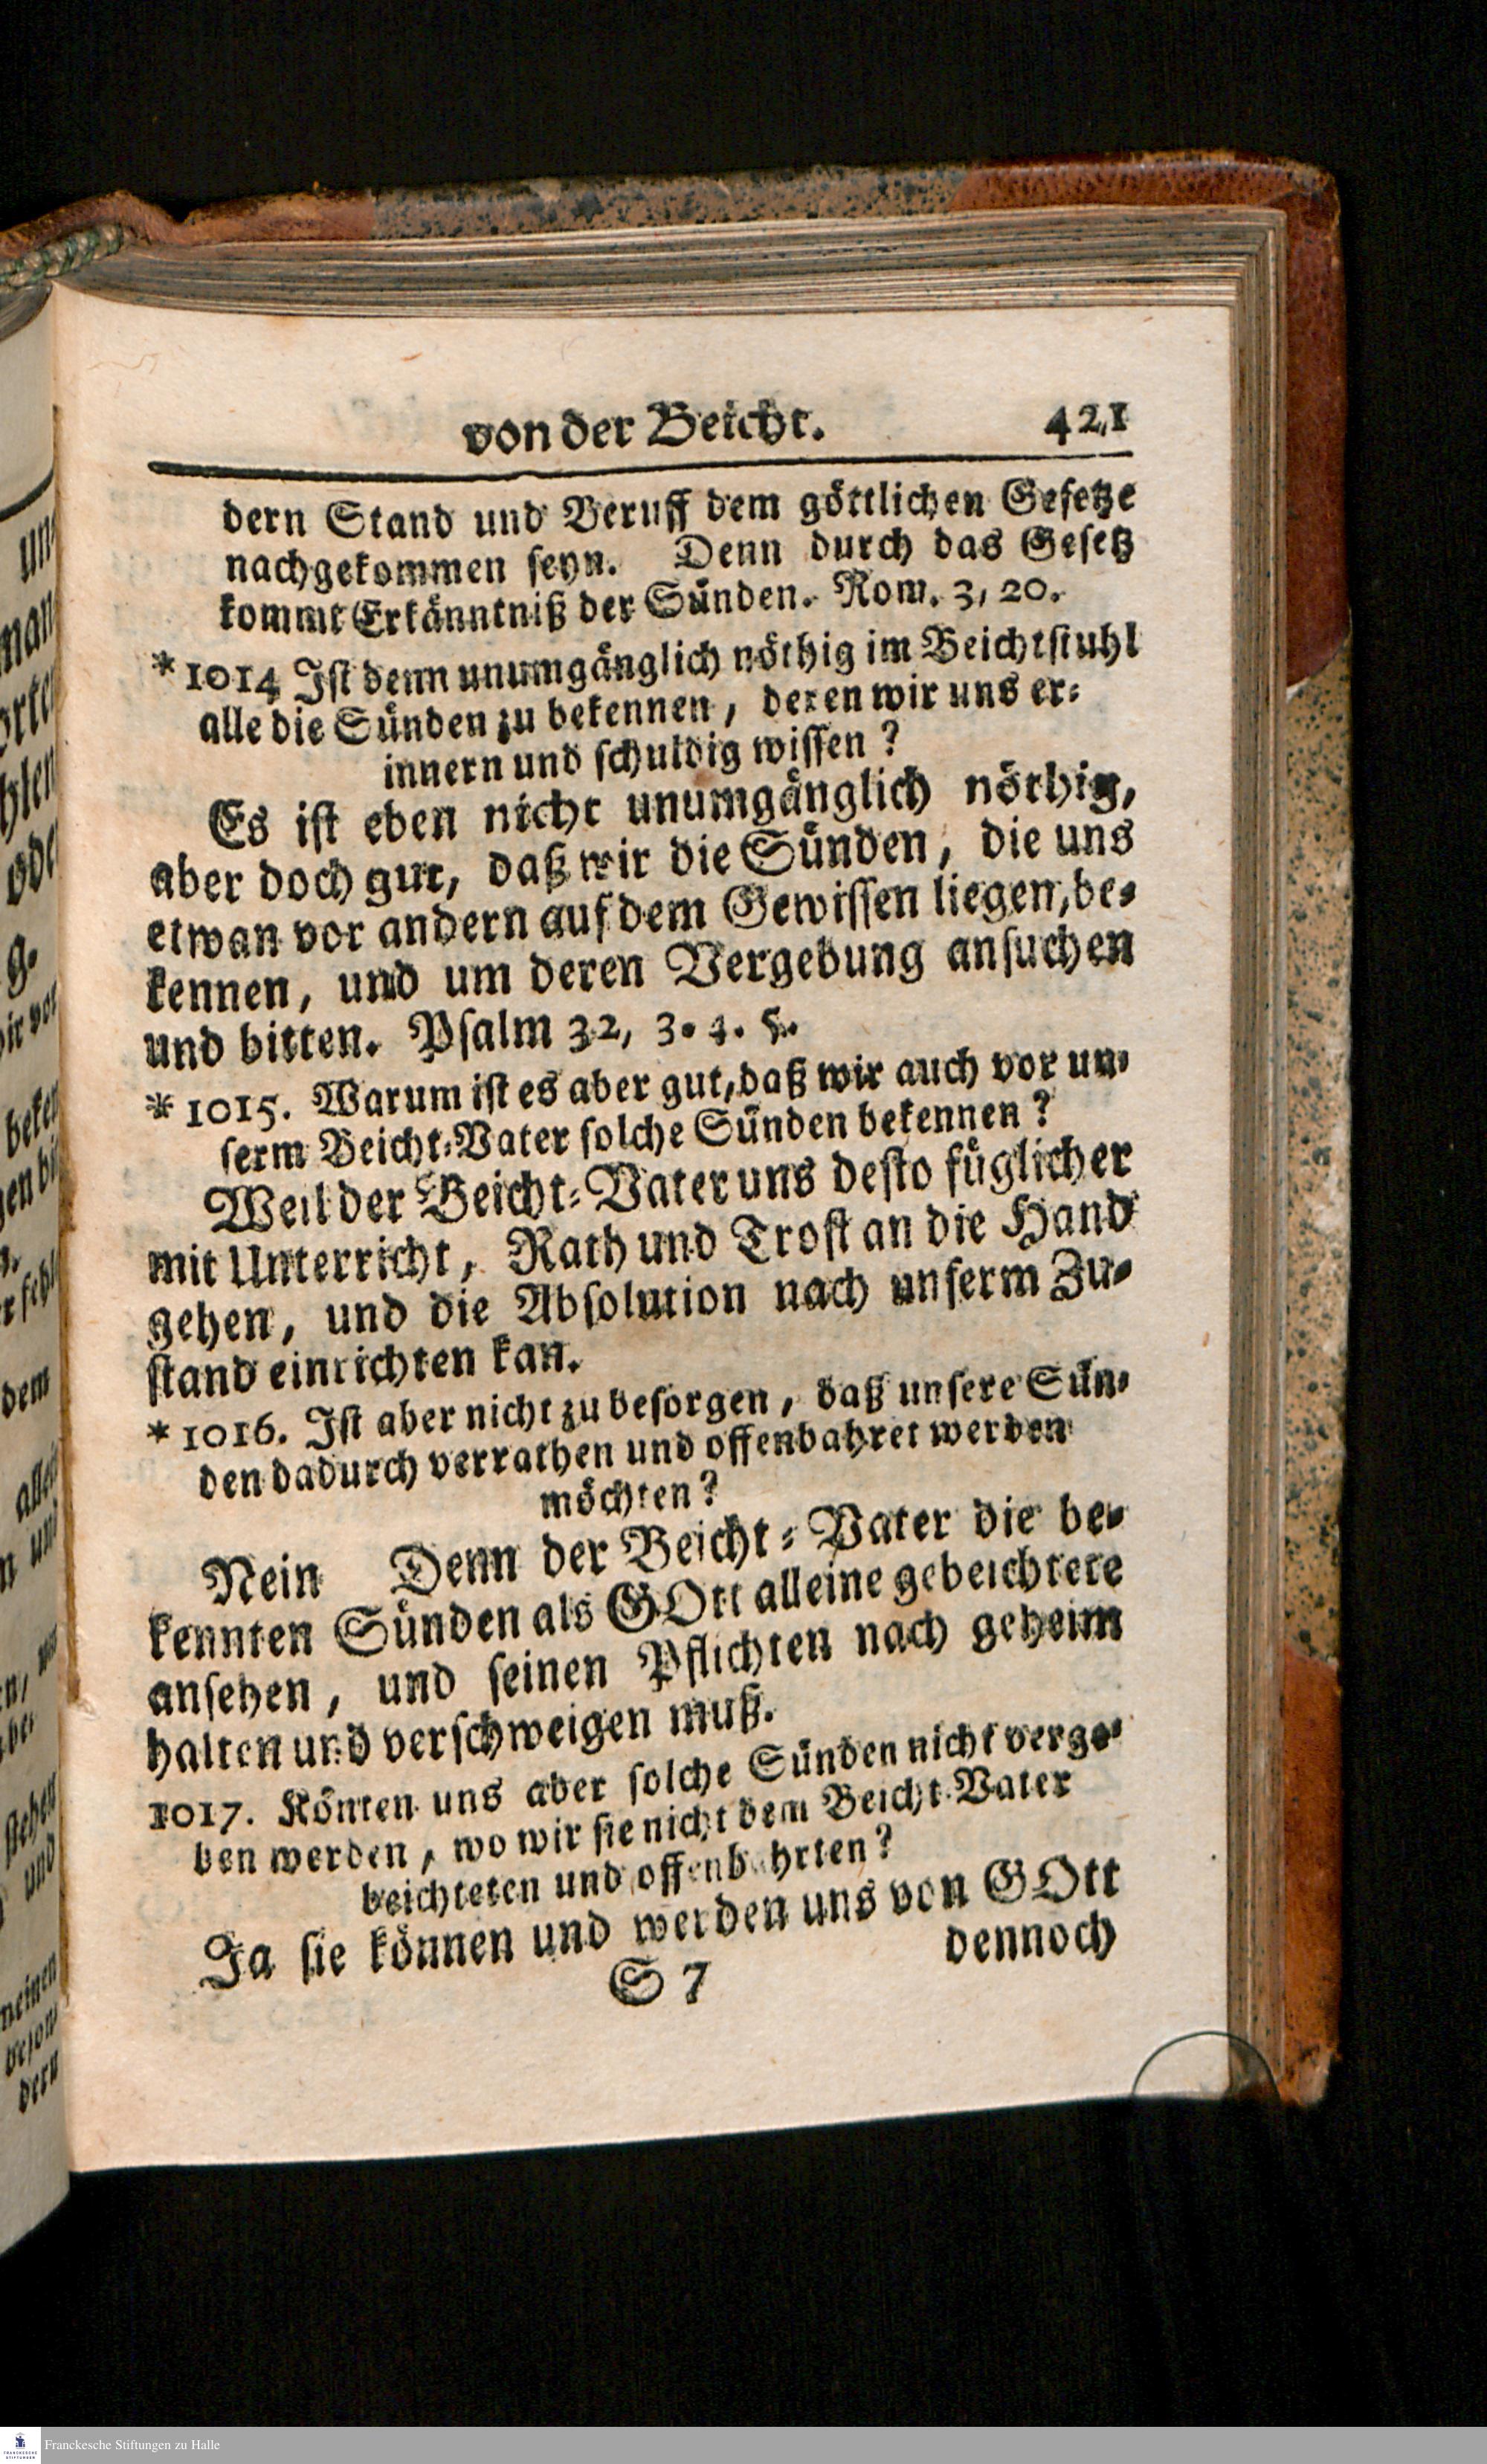 von der Beicht. 421
dern Stand und Beruff dem göttlichen Gesetze
nachgekommen seyn. Denn durch das Gesetz
kommt Erkänntniß der Sünden. Rom. 3, 20.
* 1014 Ist denn unumgänglich nöthig im Beichtstuhl
alle die Sünden zu bekennen, deren wir uns er-
innern und schuldig wissen?
Es ist eben nicht unumgänglich nöthig,
aber doch gut, daß wir die Sünden, die uns
etwan vor andern auf dem Gewissen liegen, be-
kennen, und um deren Vergebung ansuchen
und bitten. Psalm 32, 3. 4. 5.
* 1015. Warum ist es aber gut, daß wir auch vor un-
serm Beicht-Vater solche Sünden bekennen?
Weil der Beicht-Vater uns desto füglicher
mit Unterricht, Rath und Trost an die Hand
gehen, und die Absolution nach unserm Zu-
stand einrichten kan.
* 1016. Ist aber nicht zu besorgen, daß unsere Sün-
den dadurch verrathen und offenbahret werden
möchten?
Nein Denn der Beicht-Vater die be-
kennten Sünden als GOtt alleine gebeichtete
ansehen, und seinen Pflichten nach geheim
halten und verschweigen muß.
1017. Könten uns aber solche Sünden nicht verge-
ben werden, wo wir sie nicht dem Beicht-Vater
beichteten und offenbahrten?
Ja sie können und werden uns von GOtt
S 7 dennoch
Franckesche Stiftungen zu Halle